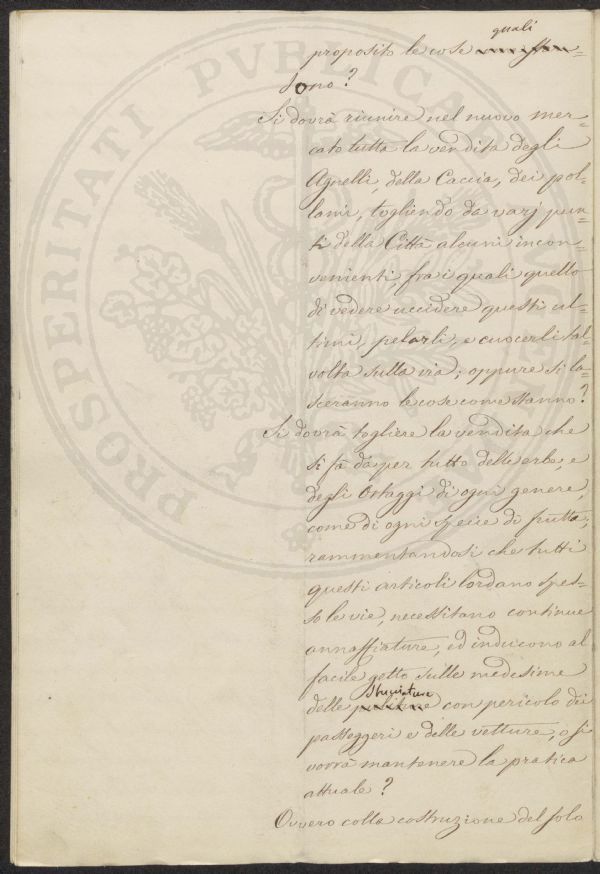 quali
proposito le cose
sono?
Si dovrà riunire nel nuovo mer=
cato tutta la vendita degli
Agnelli, della Caccia, dei pol=
lami, togliendo da varj pun=
ti della Città alcuni incon=
venienti, fra i quali quello
di vedere uccidere questi ul=
timi, pelarli, e cuocerli tal=
volta sulla via; oppure si la=
sceranno le cose come stanno?
Si dovrà togliere la vendita che
si fà da per tutto delle erbe, e
degli Ortaggi di ogni genere,
come di ogni specie di frutta;
rammentandosi che tutti
questi articoli lordano spes=
so le vie, necessitano continue
annaffiature, ed inducono al
facile getto sulle medesime
delle con pericolo dei
passeggeri e delle vetture, o si
vorrà mantenere la pratica
attuale?
Ovvero colla costruzione del solo
PROSPERITATI PVBLICAE